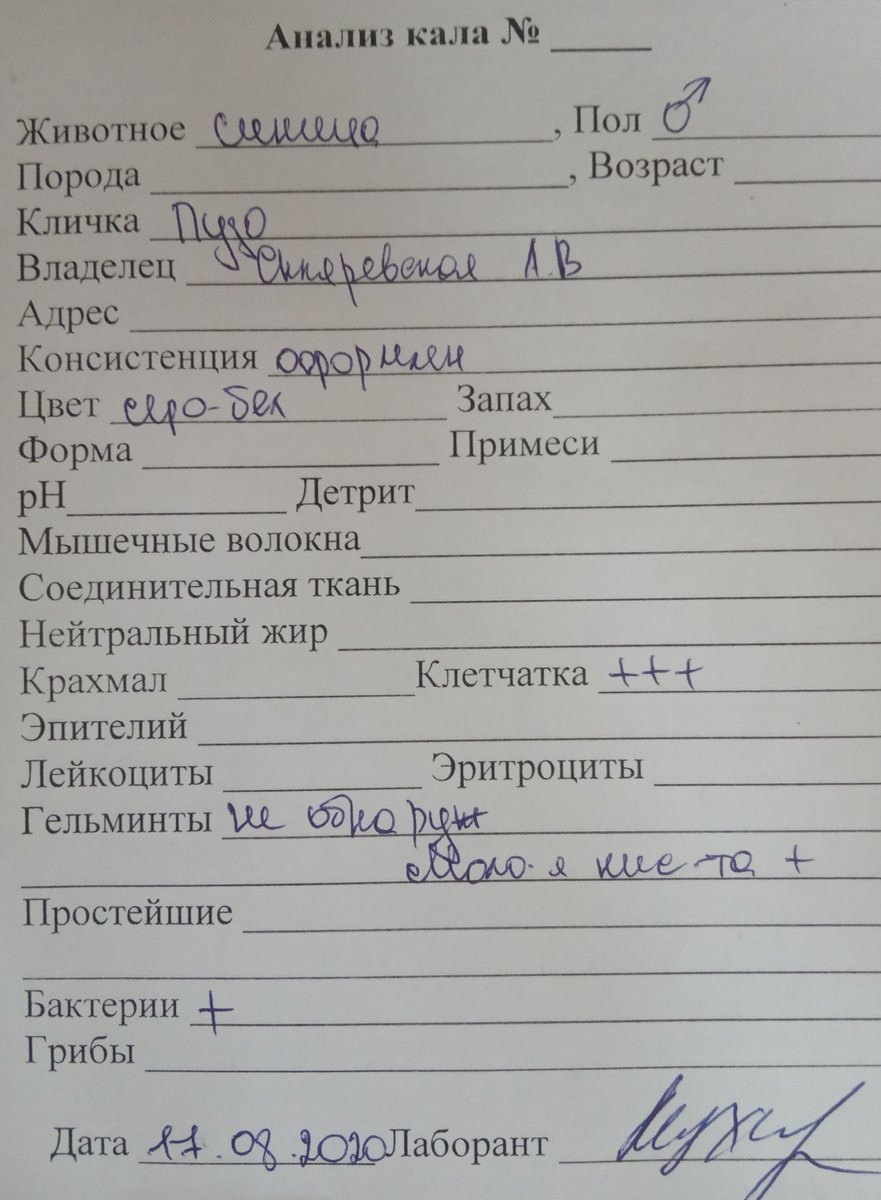 Анализ кала № ______
Животное синица, Пол ♂
Порода ______, Возраст ______
Кличка Пузо
Владелец Скляревская А.В
Адрес ______
Консистенция оформлен
Цвет серо-бел Запах ______
Форма ______ Примеси ______
pH ______ Детрит ______
Мышечные волокна ______
Соединительная ткань ______
Нейтральный жир ______
Крахмал ______ Клетчатка +++
Эпителий ______
Лейкоциты ______ Эритроциты ______
Гельминты не обнаруж
кис-та +
Простейшие ______
Бактерии +
Грибы ______
Дата 17.08.2020 Лаборант